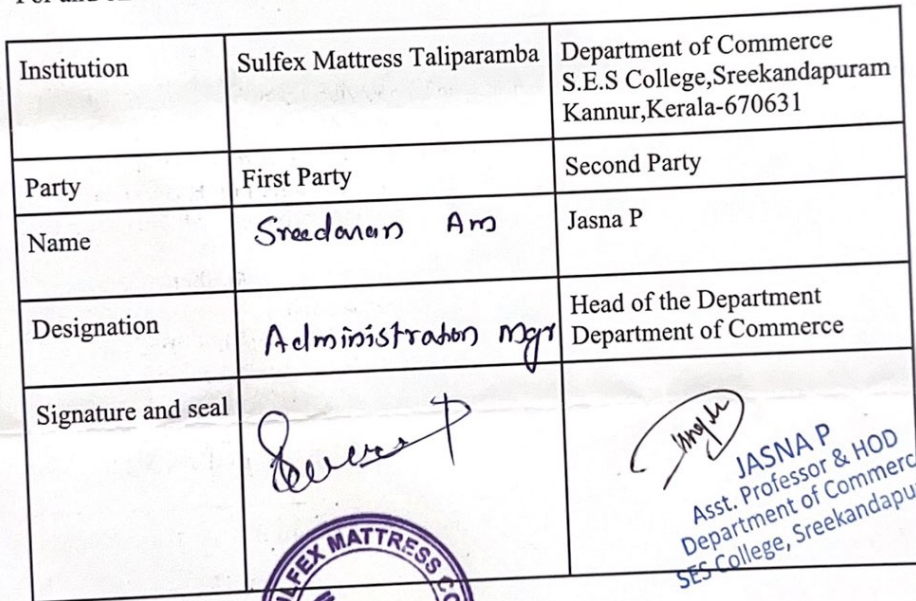 Institution
Sulfex Mattress Taliparamba
Department of Commerce
S.E.S College,Sreekandapuram
Kannur,Kerala-670631
Party
First Party
Second Party
Name
Am
Jasna P
Designation
Administration Mgr
Head of the Department
Department of Commerce
Signature and seal
JASNA P
Asst. Professor & HOD
Department of Commerc
SES College, Sreekandapu
LFEX MATTRESS CO